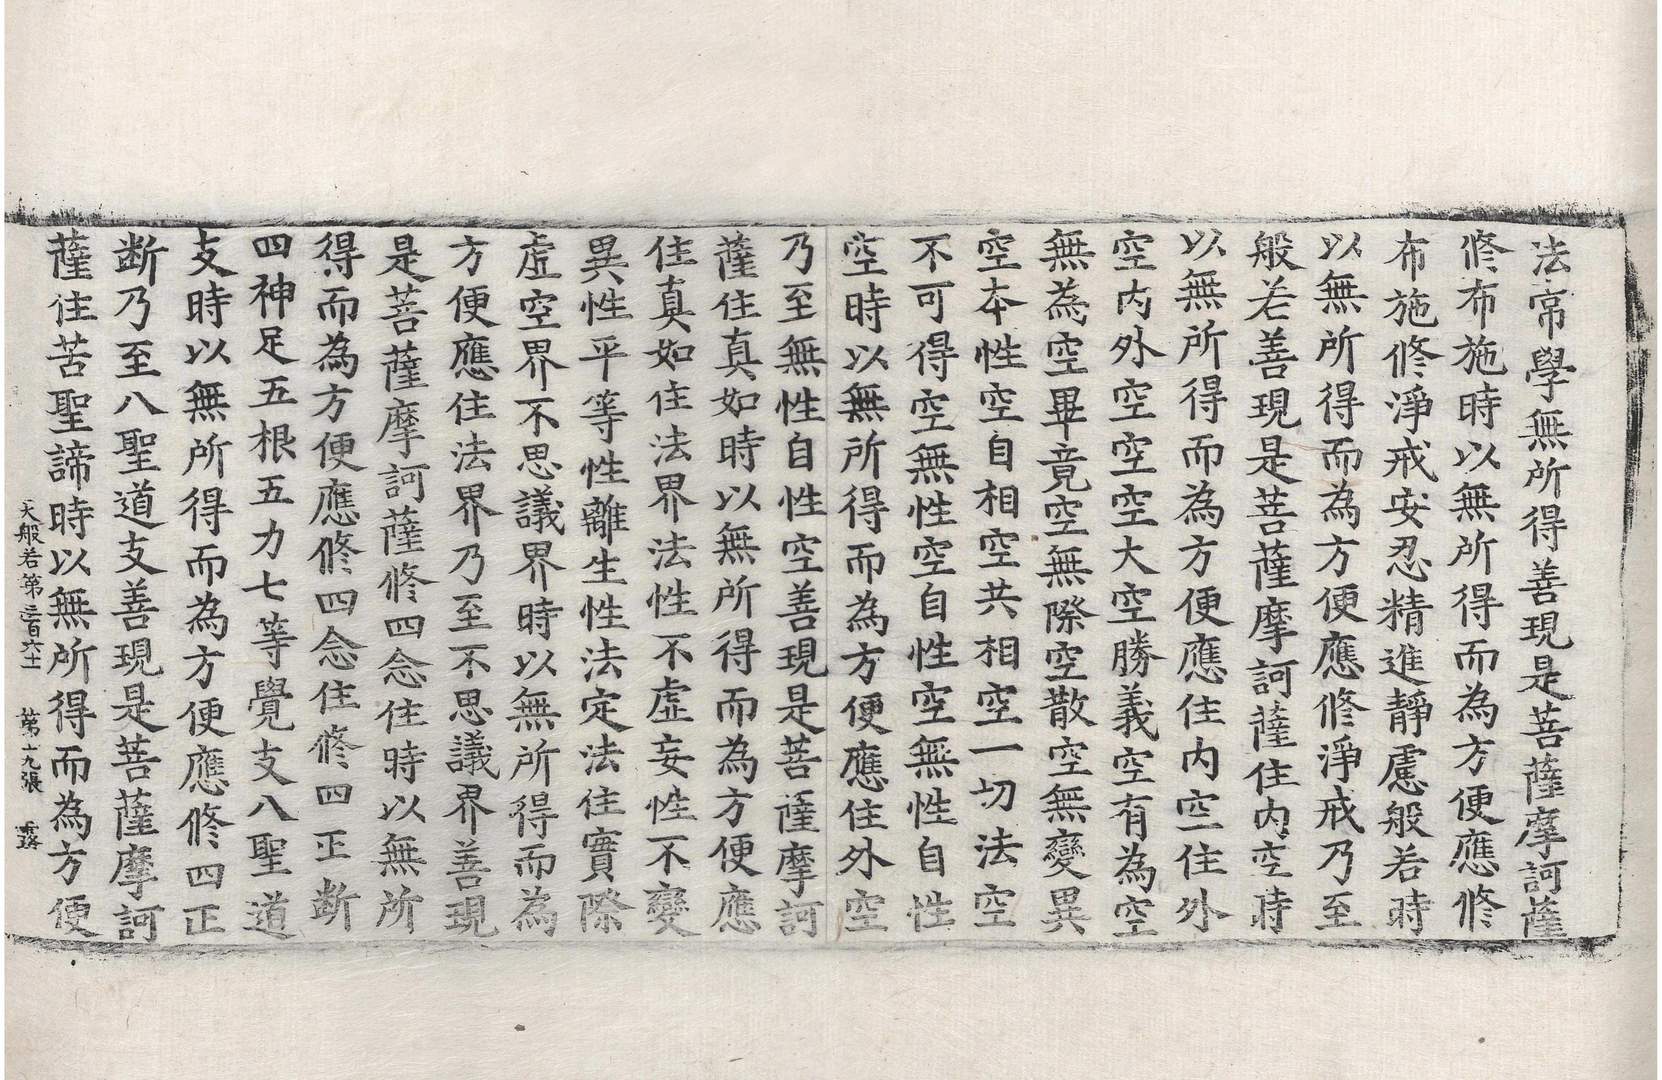 法常學無所得善現是菩薩摩訶薩
修布施時以無所得而為方便應修
布施修淨戒安忍精進靜慮般若時
以無所得而為方便應修淨戒乃至
般若善現是菩薩摩訶薩住內空時
以無所得而為方便應住內空住外
空內外空空空大空勝義空有為空
無為空畢竟空無際空散空無變異
空本性空自相空共相空一切法空
不可得空無性空自性空無性自性
空時以無所得而為方便應住外空
乃至無性自性空善現是菩薩摩訶
薩住真如時以無所得而為方便應
住真如住法界法性不虛妄性不變
異性平等性離生性法定法住實際
虛空界不思議界時以無所得而為
方便應住法界乃至不思議界善現
是菩薩摩訶薩修四念住時以無所
得而為方便應修四念住修四正断
四神足五根五力七等覺支八聖道
支時以無所得而為方便應修四正
断乃至八聖道支善現是菩薩摩訶
薩住苦聖諦時以無所得而為方便
大般若第三百六十一 第十九張 露